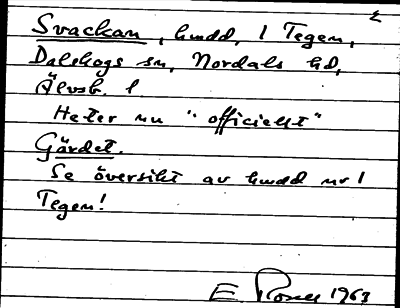 2
Svackan, hmdd, 1 Tegen,
Dalskogs sn, Nordals hd,
Älvsb. l.
Heter nu "officiellt"
Gärdet.
Se översikt av hmdd nr 1
Tegen!
E. Rosell 1963